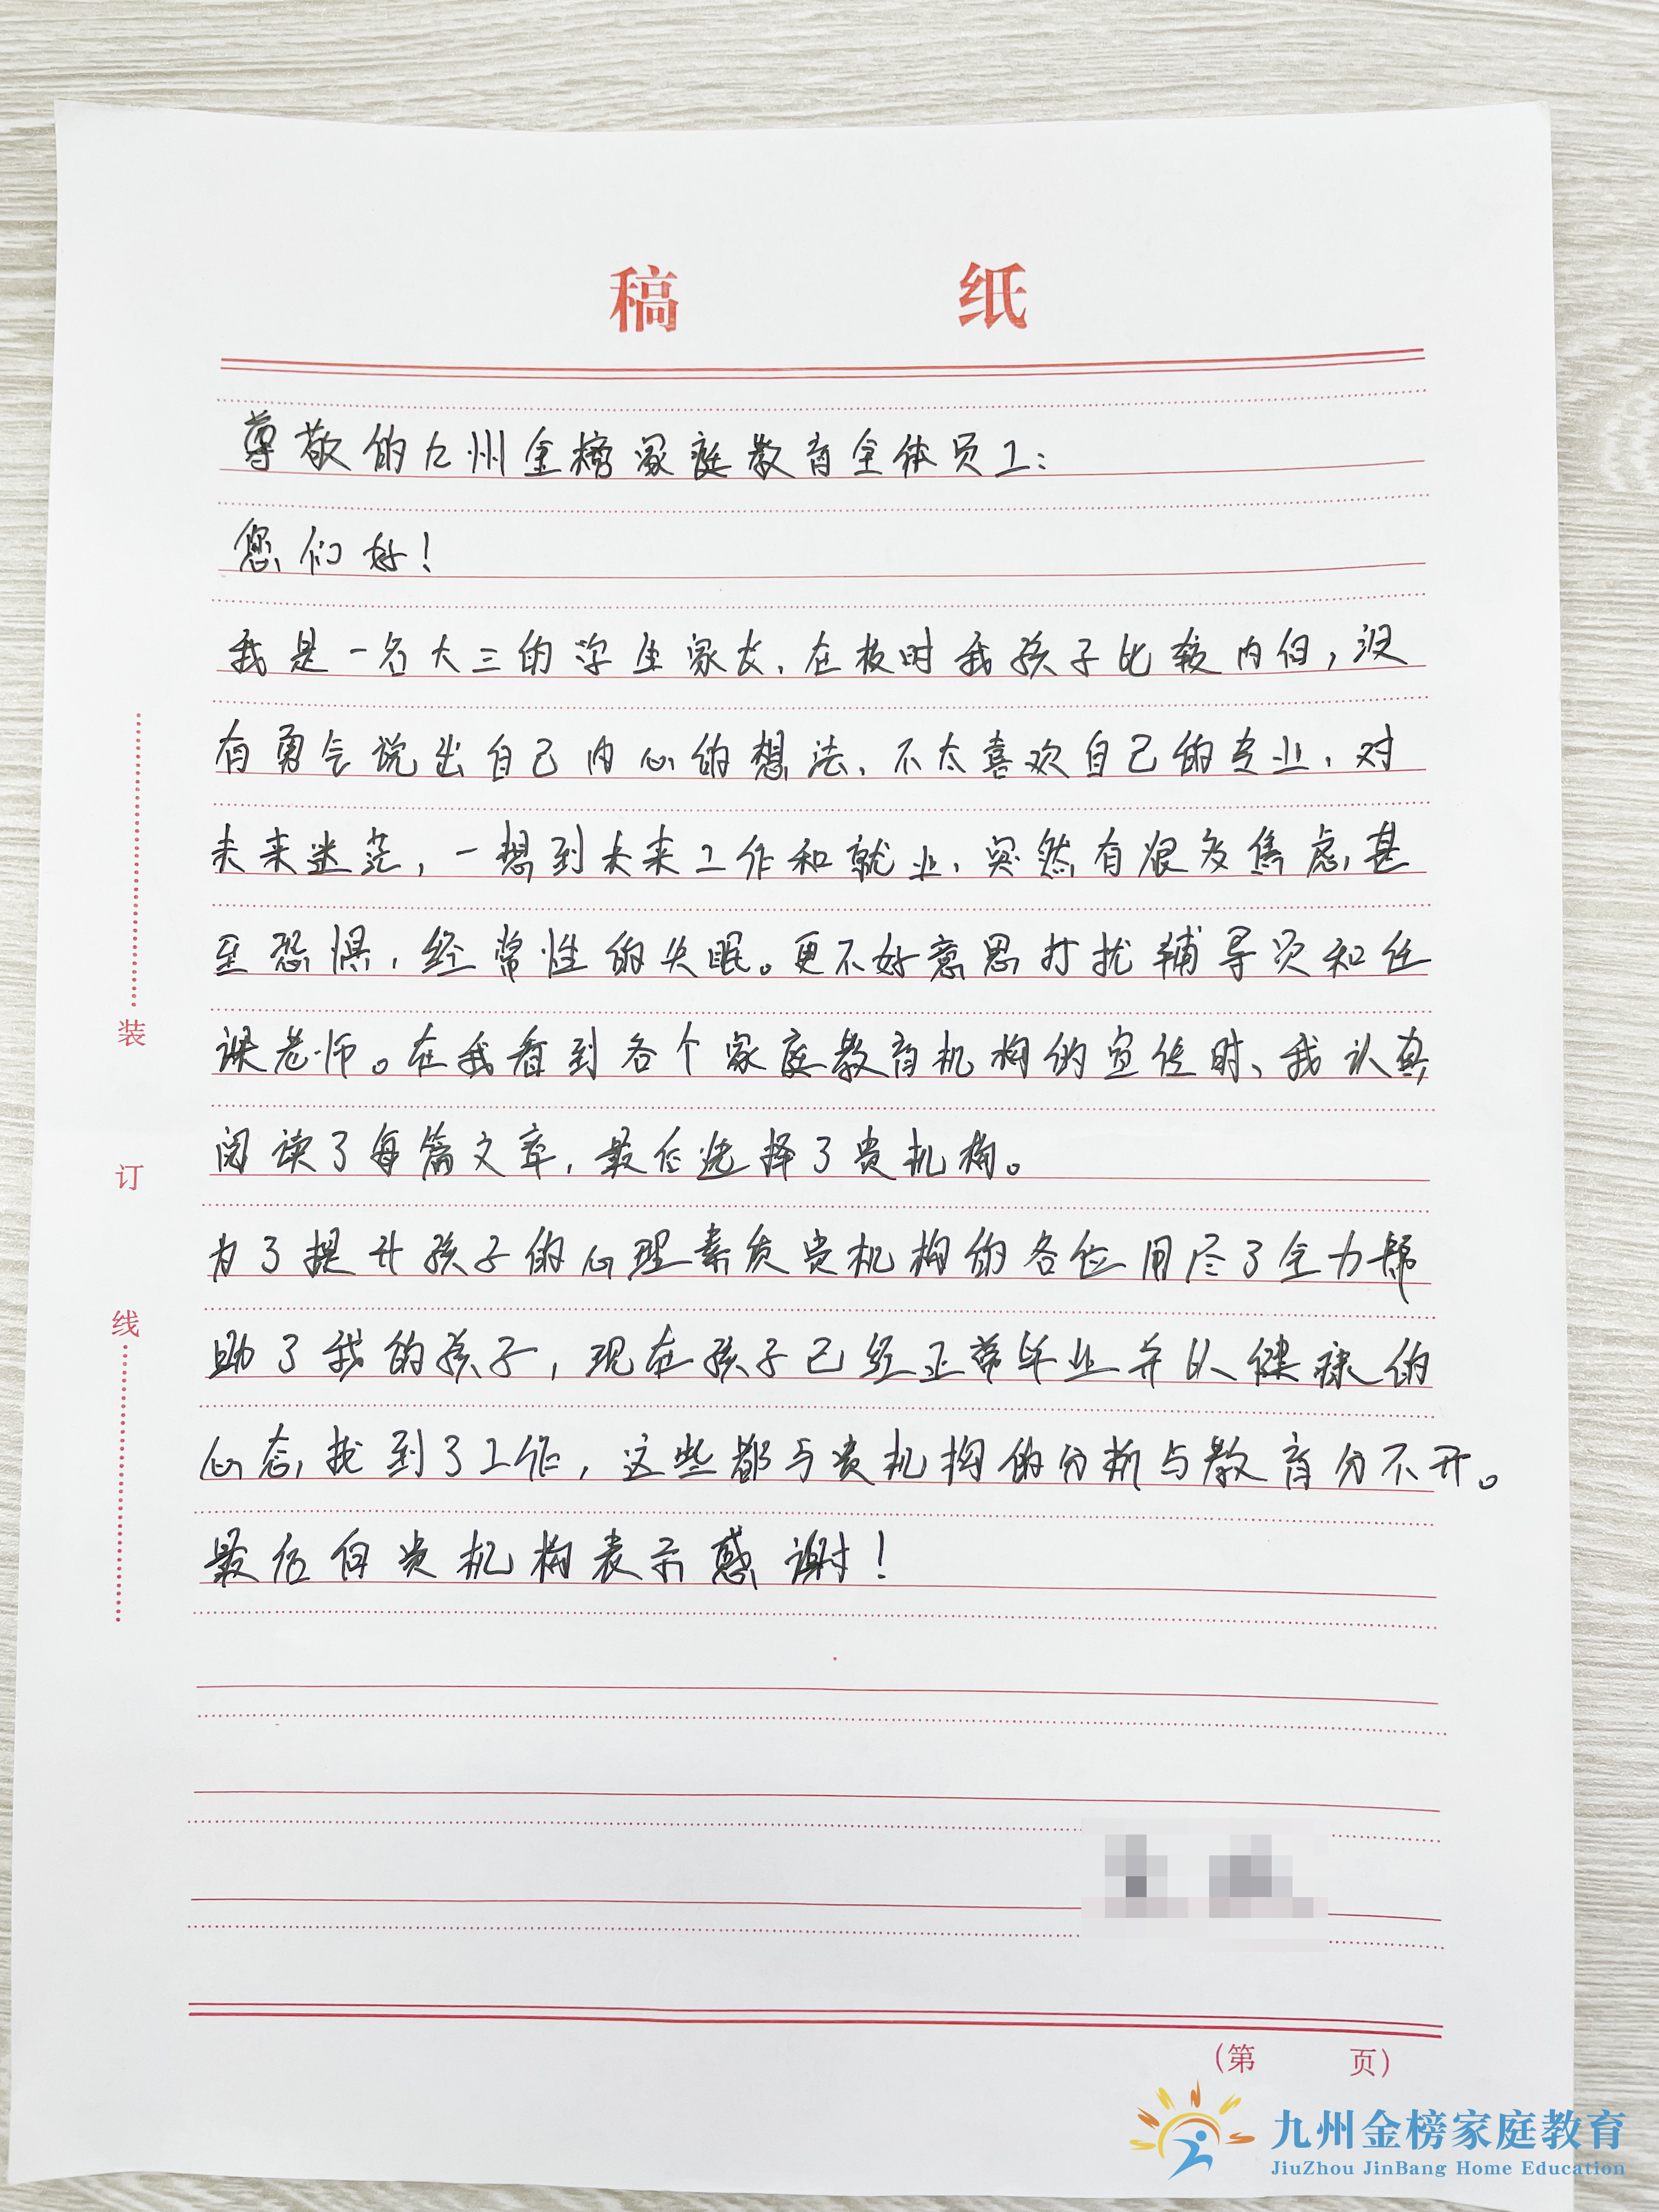 稿 纸
尊敬的九州金榜家庭教育全体员工：
您们好！
我是一名大三的学生家长，在校时我孩子比较内向，没
有勇气说出自己内心的想法，不太喜欢自己的专业，对
未来迷茫，一想到未来工作和就业，突然有很多焦虑，甚
至恐惧，经常性的失眠。更不好意思打扰辅导员和任
课老师。在我看到各个家庭教育机构的宣传时、我认真
阅读了每篇文章，最后选择了贵机构。
为了提升孩子的心理素质贵机构的各位用尽了全力帮
助了我的孩子，现在孩子已经正常毕业并以健康的
心态，找到了工作，这些都与贵机构的分析与教育分不开。
最后向贵机构表示感谢！
装
订
线
（第 页）
九州金榜家庭教育
JiuZhou JinBang Home Education